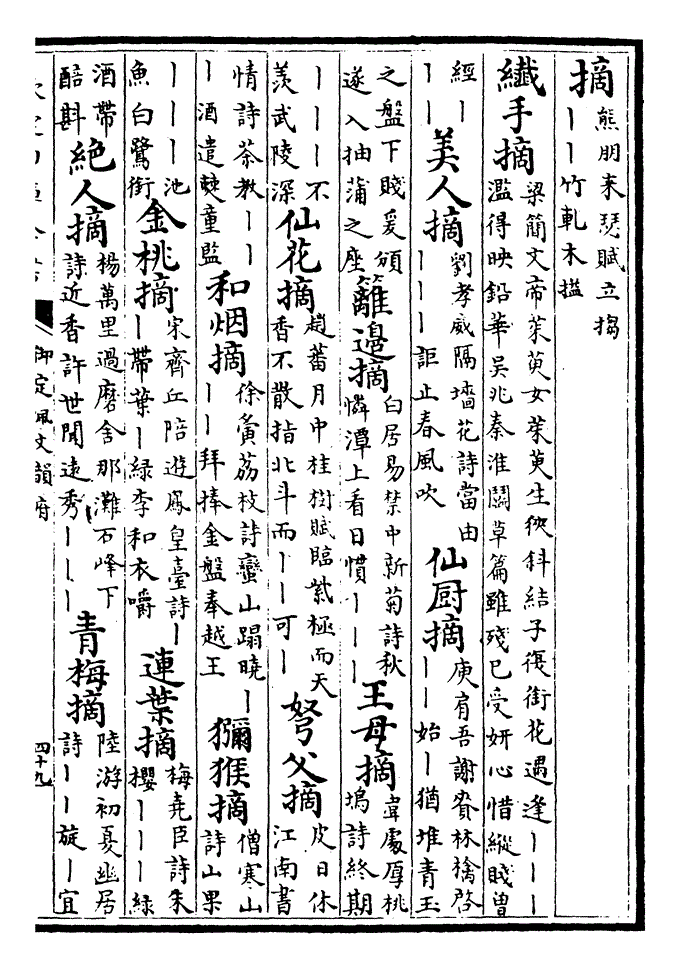 摘熊朋来瑟賦立搊丨丨竹軋木搤
纎手摘梁簡文帝茱萸女茱萸生狹斜結子復銜花遇逢丨丨丨濫得映鉛華吳兆秦淮鬬草篇雖殘已受妍心惜縱賤曽
經丨丨丨美人摘劉孝威隔墻花詩當由丨丨丨詎止春風吹仙厨摘庾肩吾謝賚林檎啓丨丨始丨猶堆青玉
之盤下賤爰頒遂入抽蒲之座籬邉摘白居易禁中新菊詩秋憐潭上看日慣丨丨丨王母摘韋處厚桃塢詩終期
丨丨丨不羨武陵深仙花摘趙蕃月中桂樹賦臨紫極而天香不散指北斗而丨丨可丨弩父摘皮日休江南書
情詩茶教丨丨丨酒遣童監和烟摘徐夤荔枝詩蠻山蹋曉丨丨丨拜捧金盤奉越王獼猴摘僧寒山詩山果
丨丨丨池魚白鷺銜金桃摘宋齊丘陪遊鳳皇臺詩丨丨帶葉丨緑李和衣嚼連葉摘梅堯臣詩朱櫻丨丨丨緑
酒帶醅斟絶人摘楊萬里過磨舍那灘石峰下詩近香許世聞逺秀丨丨丨青梅摘陸游初夏幽居詩丨丨旋丨宜
御定佩文韻府
四十九